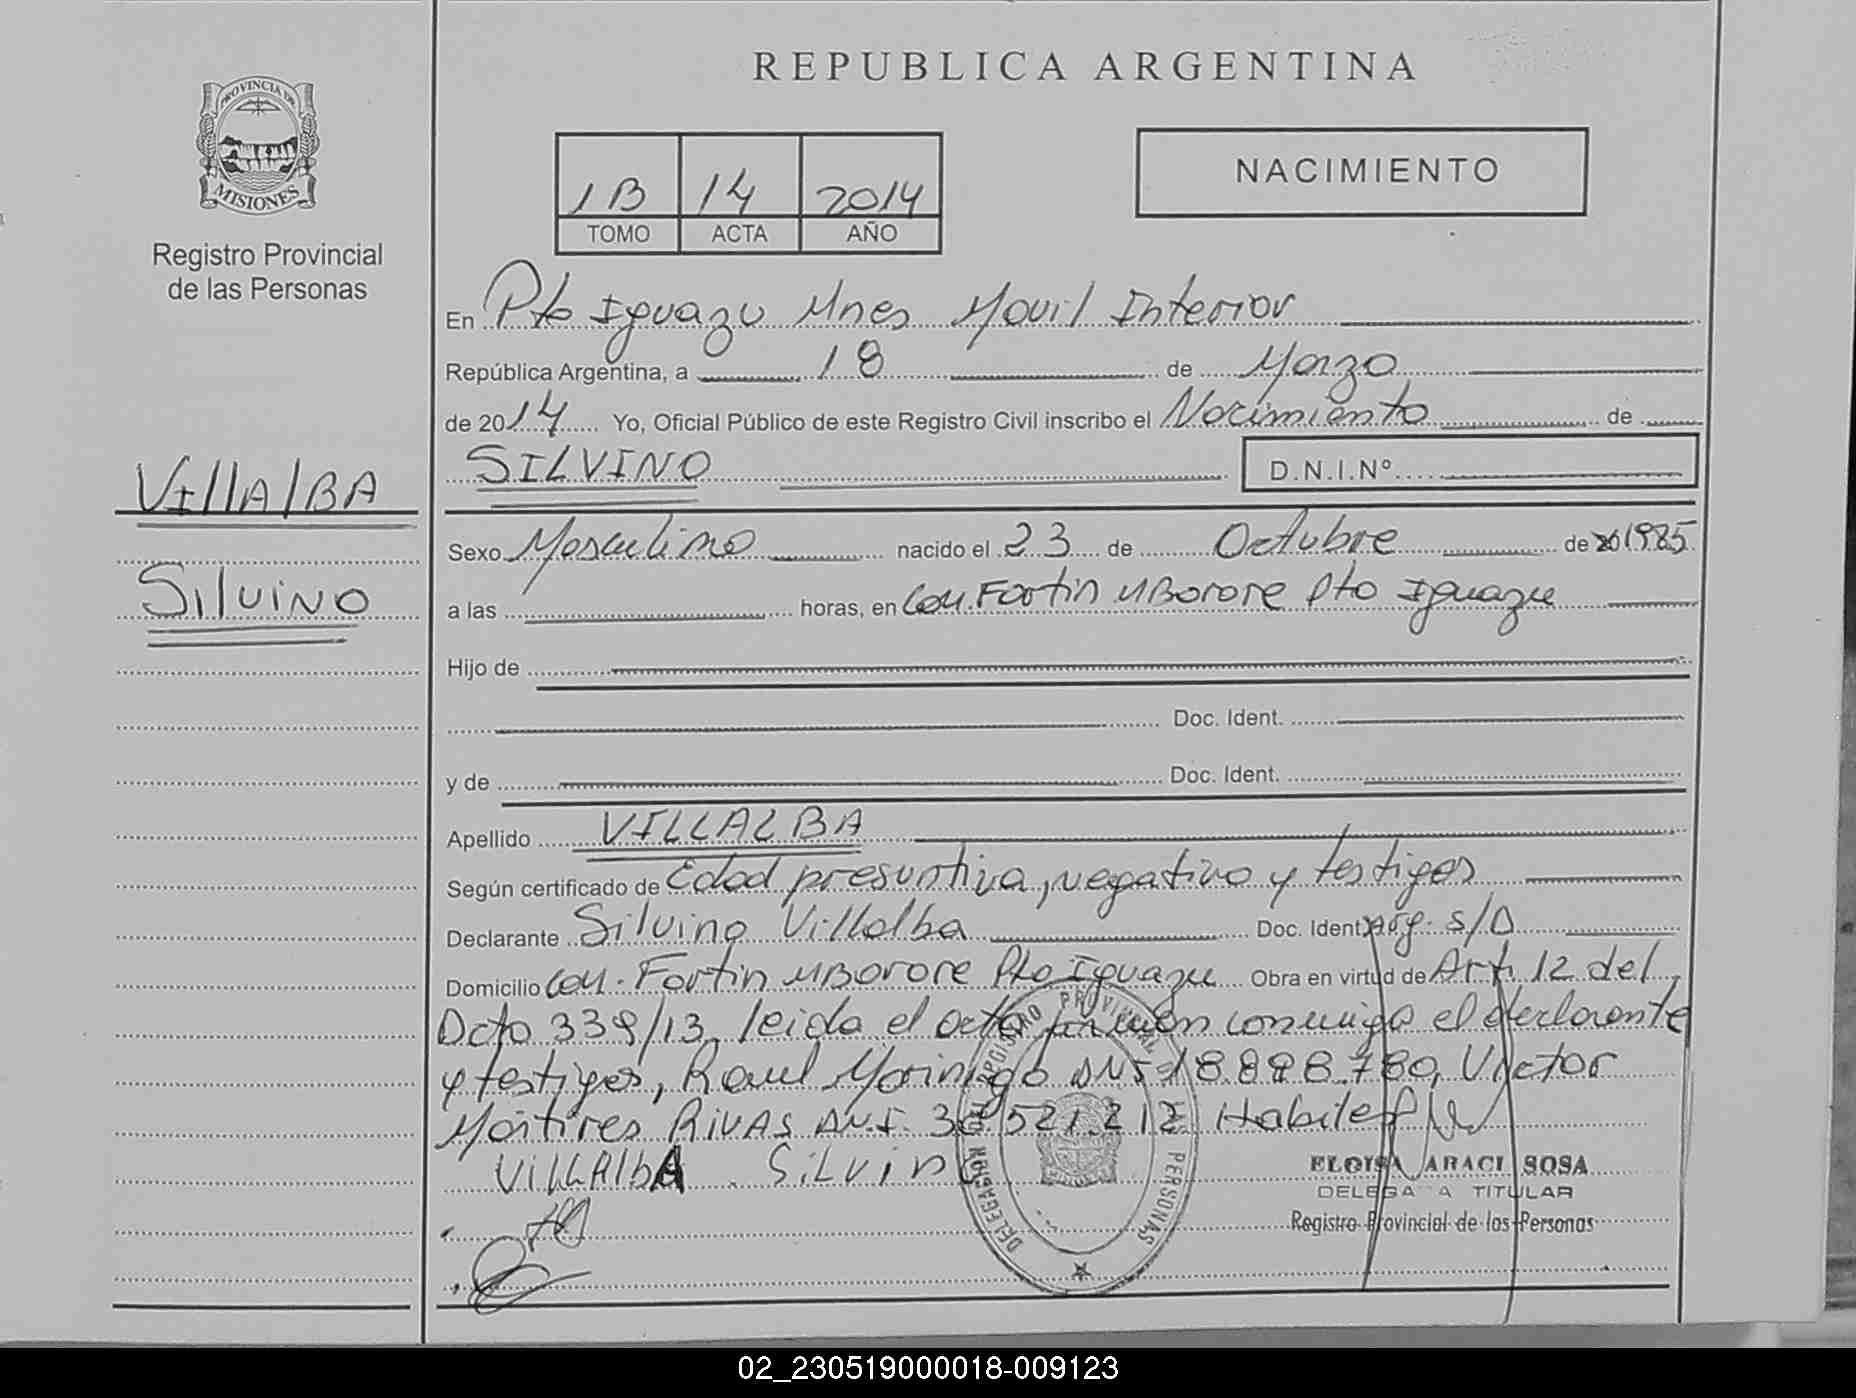 REPUBLICA ARGENTINA
PROVINCIA DE
MISIONES
Registro Provincial
de las Personas
1B 14 2014
TOMO ACTA AÑO
NACIMIENTO
En Pto Iguazu Mnes Movil Interior
República Argentina, a 18 de Marzo
de 2014 Yo, Oficial Público de este Registro Civil inscribo el Nacimiento de
SILVINO D.N.I.Nº
VillAlBA
Silvino
Sexo Masculino nacido el 23 de Octubre de 1985
a las horas, en Com. Fortin MBorore Pto Iguazu
Hijo de
Doc. Ident.
y de Doc. Ident.
Apellido VILLALBA
Según certificado de Edad presuntiva, negativo y testigos
Declarante Silvino Villalba Doc. Ident. Arg. s/D
Domicilio Com. Fortin MBorore Pto Iguazu Obra en virtud de Art. 12 del
Dcto 339/13, leida el acta firman conmigo el declarante
y testigos, Raul Morinigo DNI 18.898.780, Victor
Mártires RIVAS DNI. 36.521.212 Habiles
VillAlbA Silvino
ELOISA ARACI SOSA
DELEGADA TITULAR
Registro Provincial de las Personas
REGISTRO PROVINCIAL DE LAS PERSONAS
DELEGACION
02_230519000018-009123